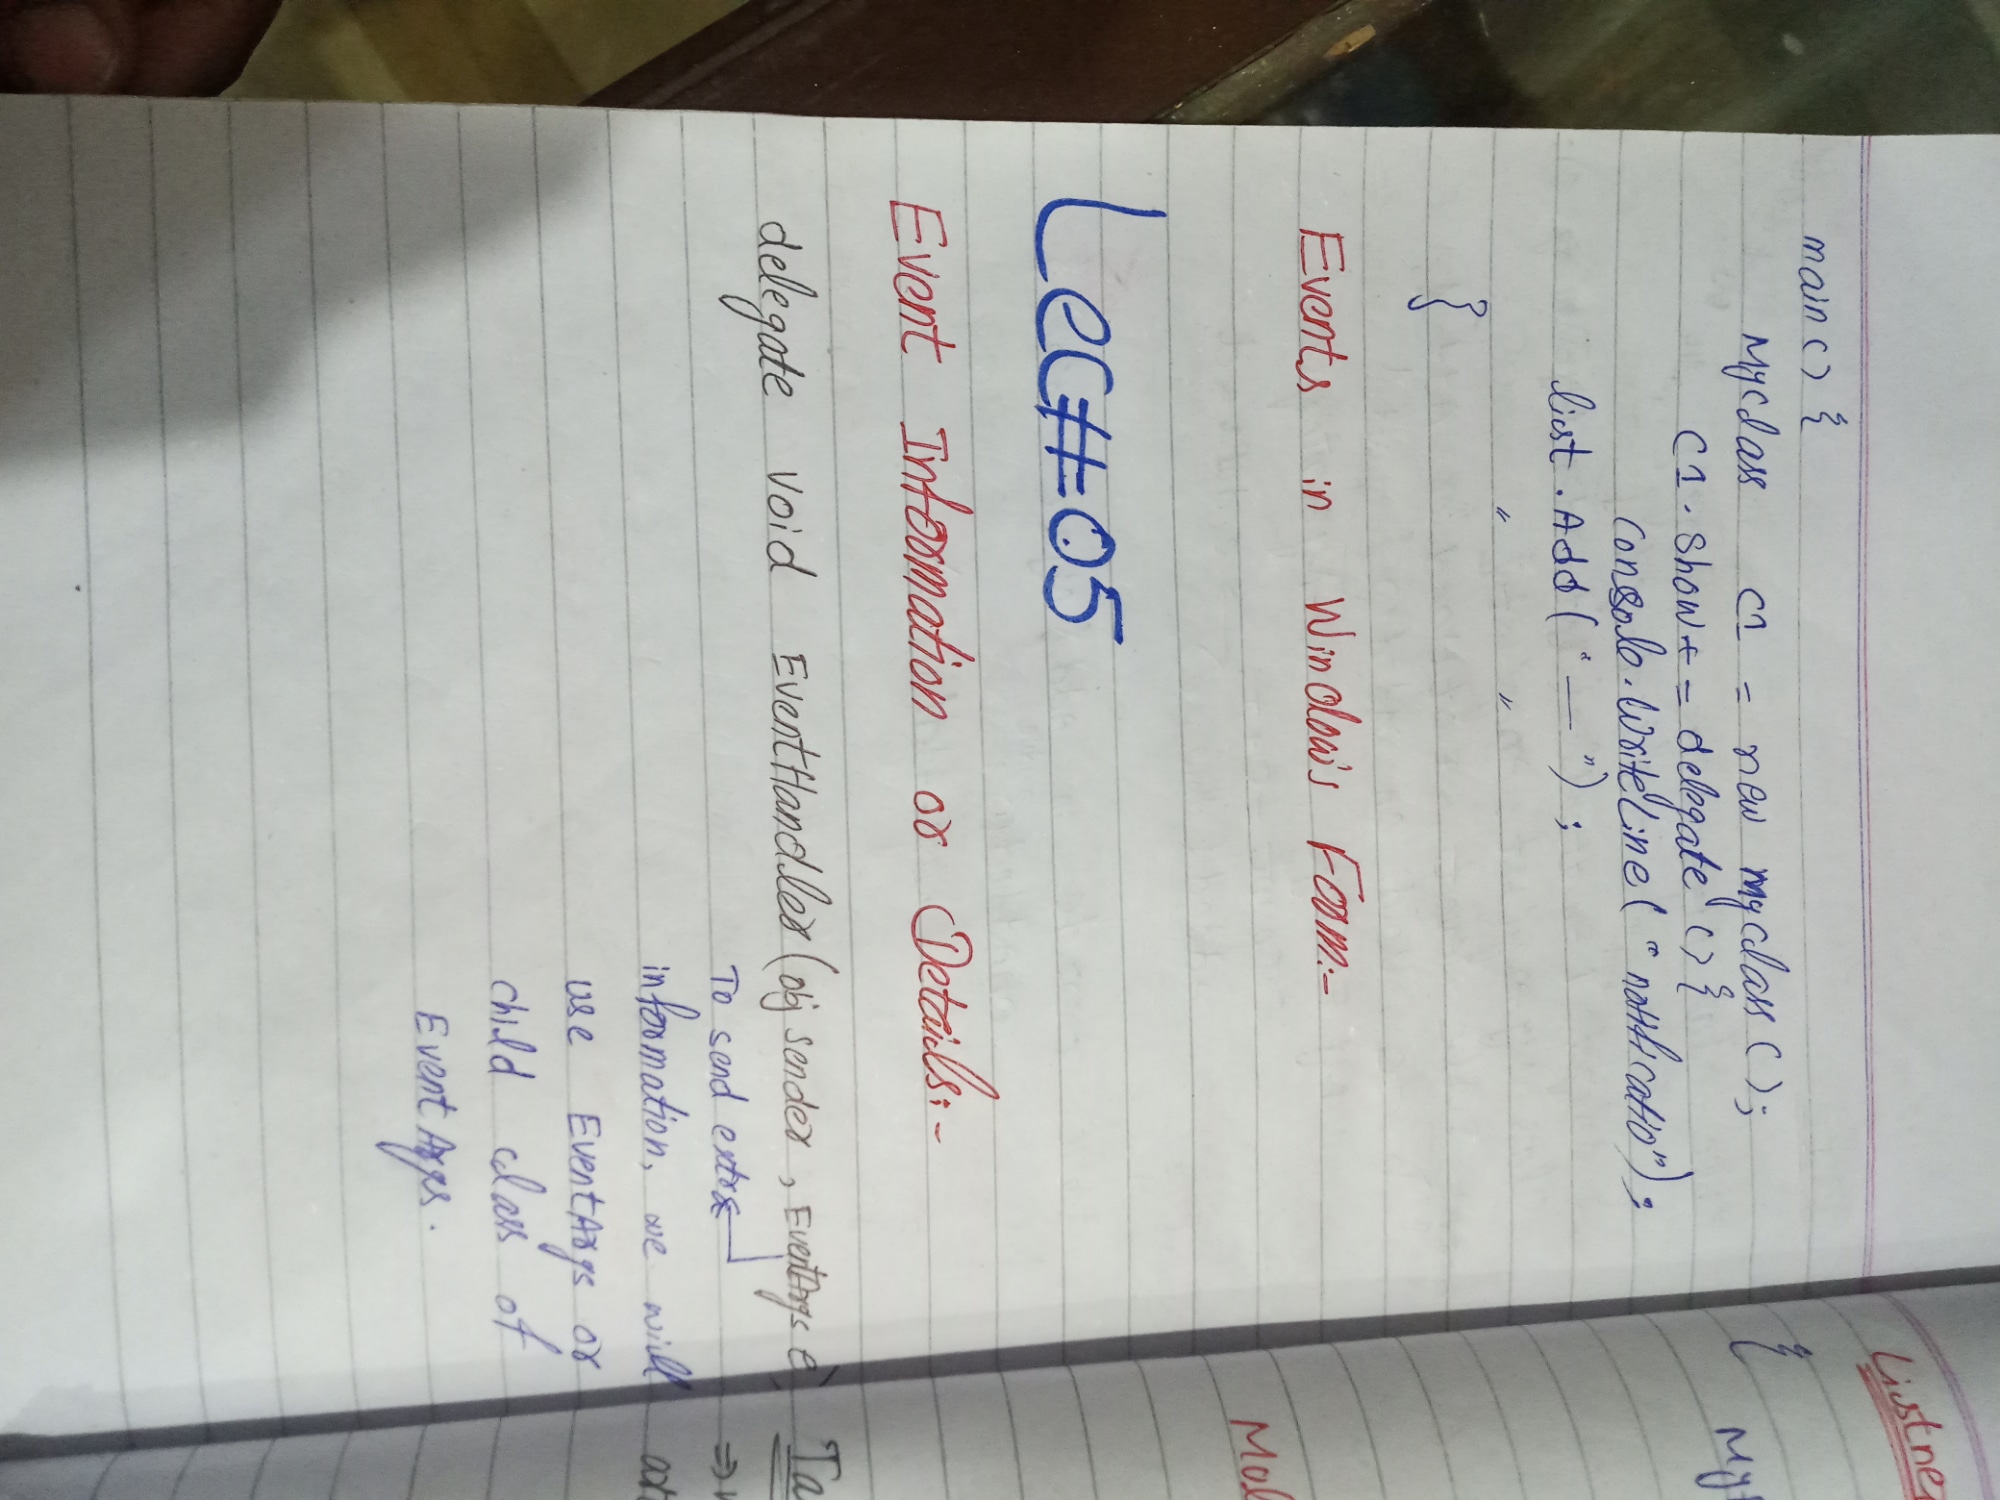 main() {
Myclass C1 = new myclass();
C1. Show += delegate () {
Console.WriteLine( " notificatio" );
list.Add( " — " ) ;
" "
}
Events in Window's Form:-
Lec#05
Event Information or Details:-
delegate void EventHandler (obj sender , EventArgs e)
To send extra
information, we will
use EventArgs or
child class of
EventArgs.
Listner
{
My
Mol
Ta
⇒